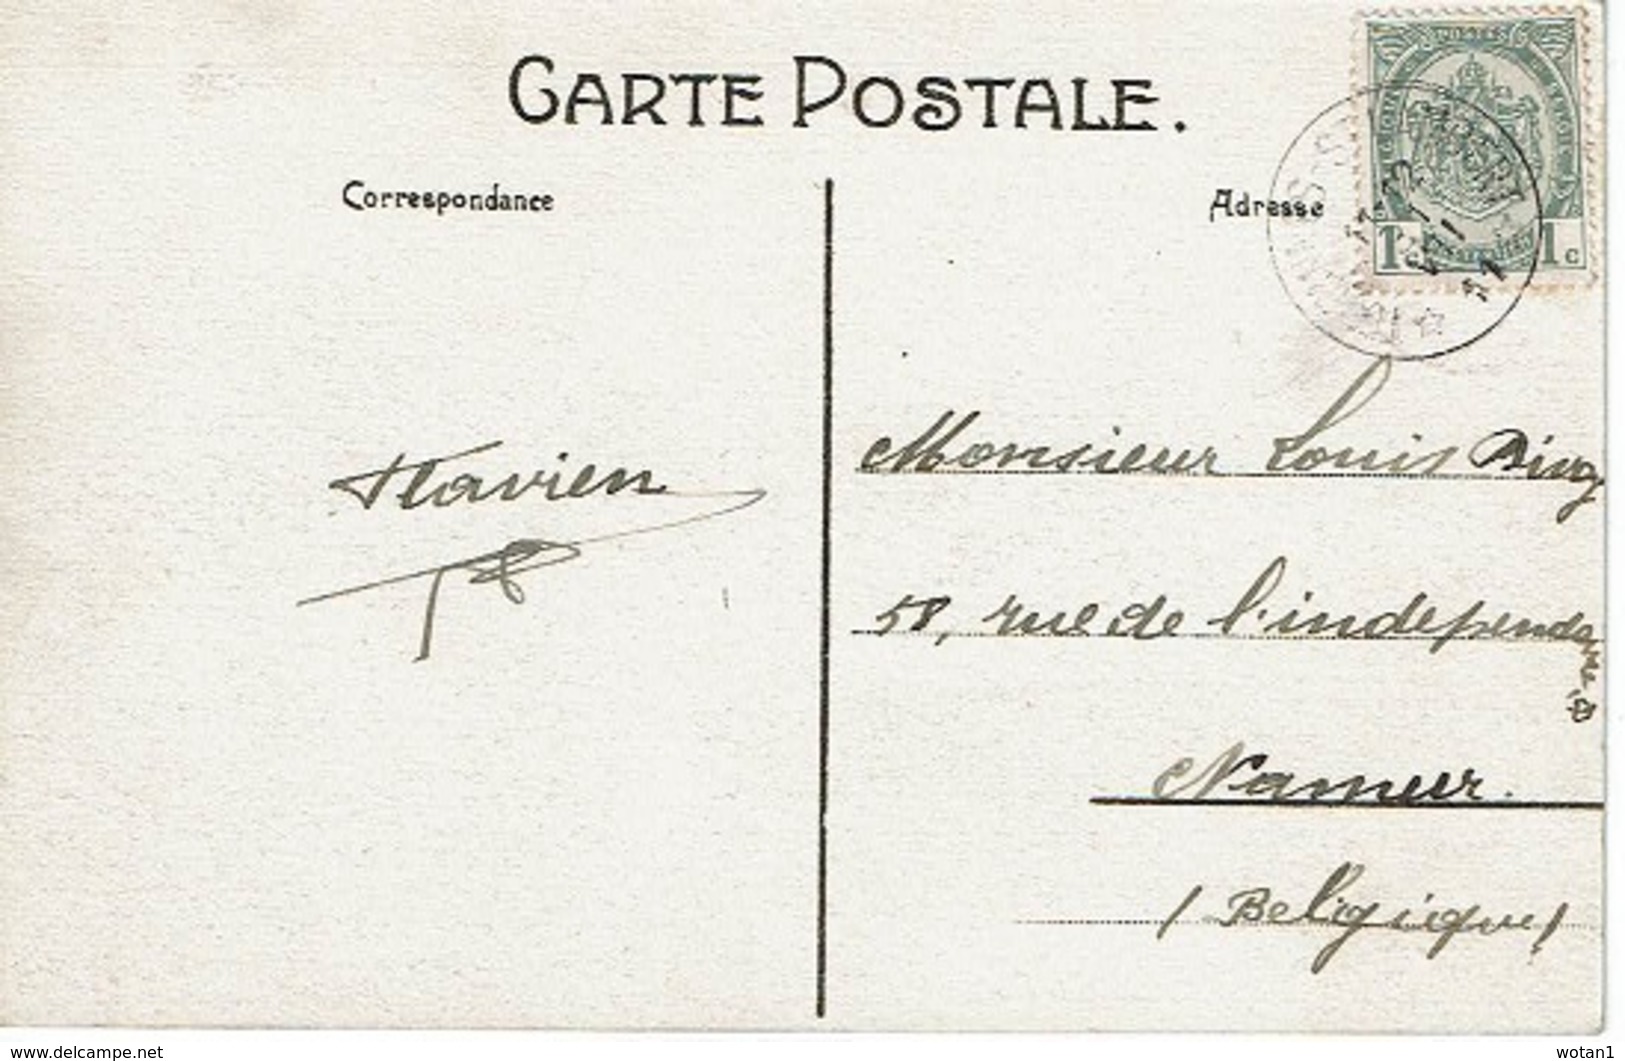 CARTE POSTALE.
Correspondance
Adresse
POSTES
1c 1c
11
Flavien
Monsieur Louis Bing
58, rue de l'indépendance,
Namur.
(Belgique)
www.delcampe.net
wotan1